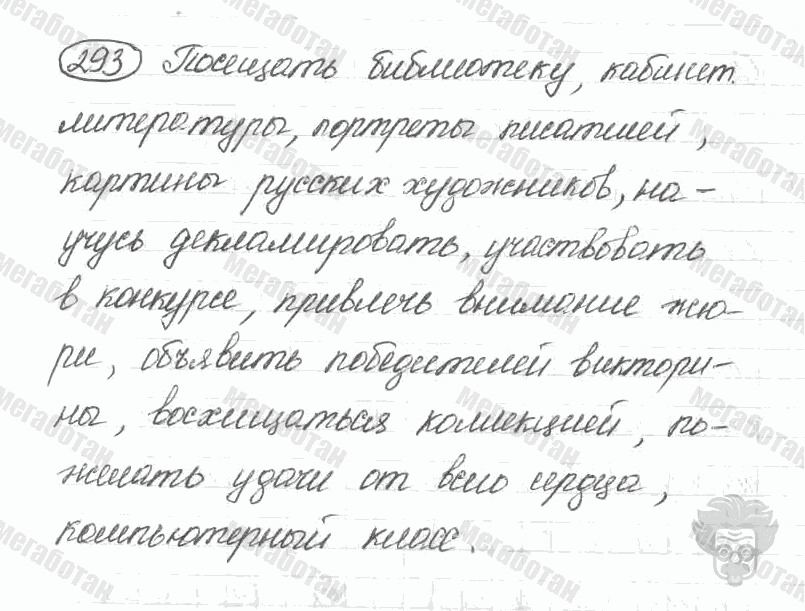 293 Посещать библиотеку, кабинет
литературы, портреты писателей,
картины русских художников, на-
учусь декламировать, участвовать
в конкурсе, привлечь внимание жю-
ри, объявить победителей виктори-
ны, восхищаться коллекцией, по-
желать удачи от всего сердца,
компьютерный класс.